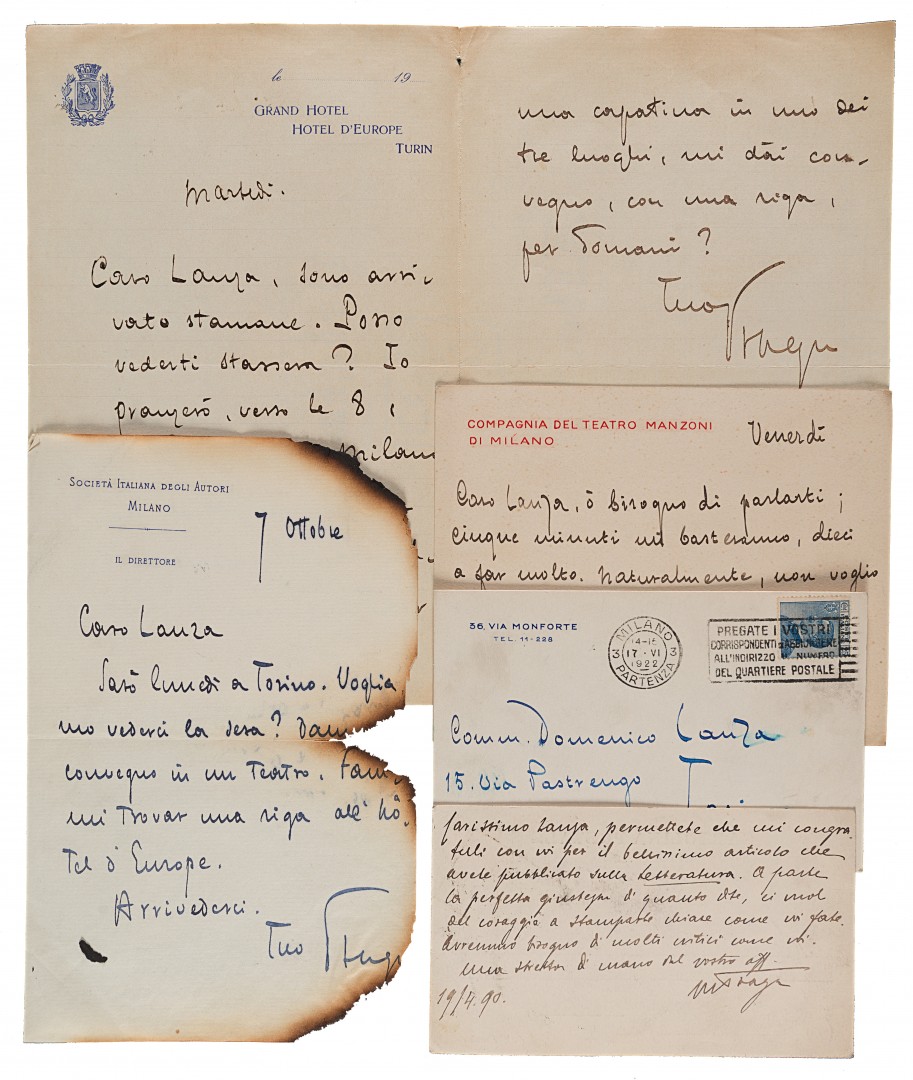 le 19
GRAND HOTEL
HOTEL D'EUROPE
TURIN
Martedì.
Caro Lanza, sono arri-
vato stamane. Posso
vederti stassera? Io
pranzerò, verso le 8,
Milano
una capatina in uno dei
tre luoghi, mi dài con-
vegno, con una riga,
per domani?
Tuo
COMPAGNIA DEL TEATRO MANZONI
DI MILANO
Venerdì
Caro Lanza, ò bisogno di parlarti;
cinque minuti mi basteranno, dieci
a far molto. Naturalmente, non voglio
SOCIETÀ ITALIANA DEGLI AUTORI
MILANO
IL DIRETTORE
7 Ottobre
Caro Lanza
Sarò lunedì a Torino. Voglia
mo vederci la sera? Dam
convegno in un Teatro. Fam
mi trovar una riga all' hô-
tel d'Europe.
Arrivederci.
Tuo
36, VIA MONFORTE
TEL. 11-228
MILANO
17 · VI
1922
PARTENZA
3 3
PREGATE I VOSTRI
CORRISPONDENTI D'AGGIUNGERE
ALL'INDIRIZZO IL NUMERO
DEL QUARTIERE POSTALE
Comm. Domenico Lanza
15. Via Pastrengo
Carissimo Lanza, permettete che mi congra
tuli con voi per il bellissimo articolo che
avete pubblicato sulla Letteratura. A parte
la perfetta giustezza di quanto dite, ci vuol
del coraggio a stamparle chiare come voi fate.
Avremmo bisogno di molti critici come voi.
Una stretta di mano dal vostro aff.
19/4.90.